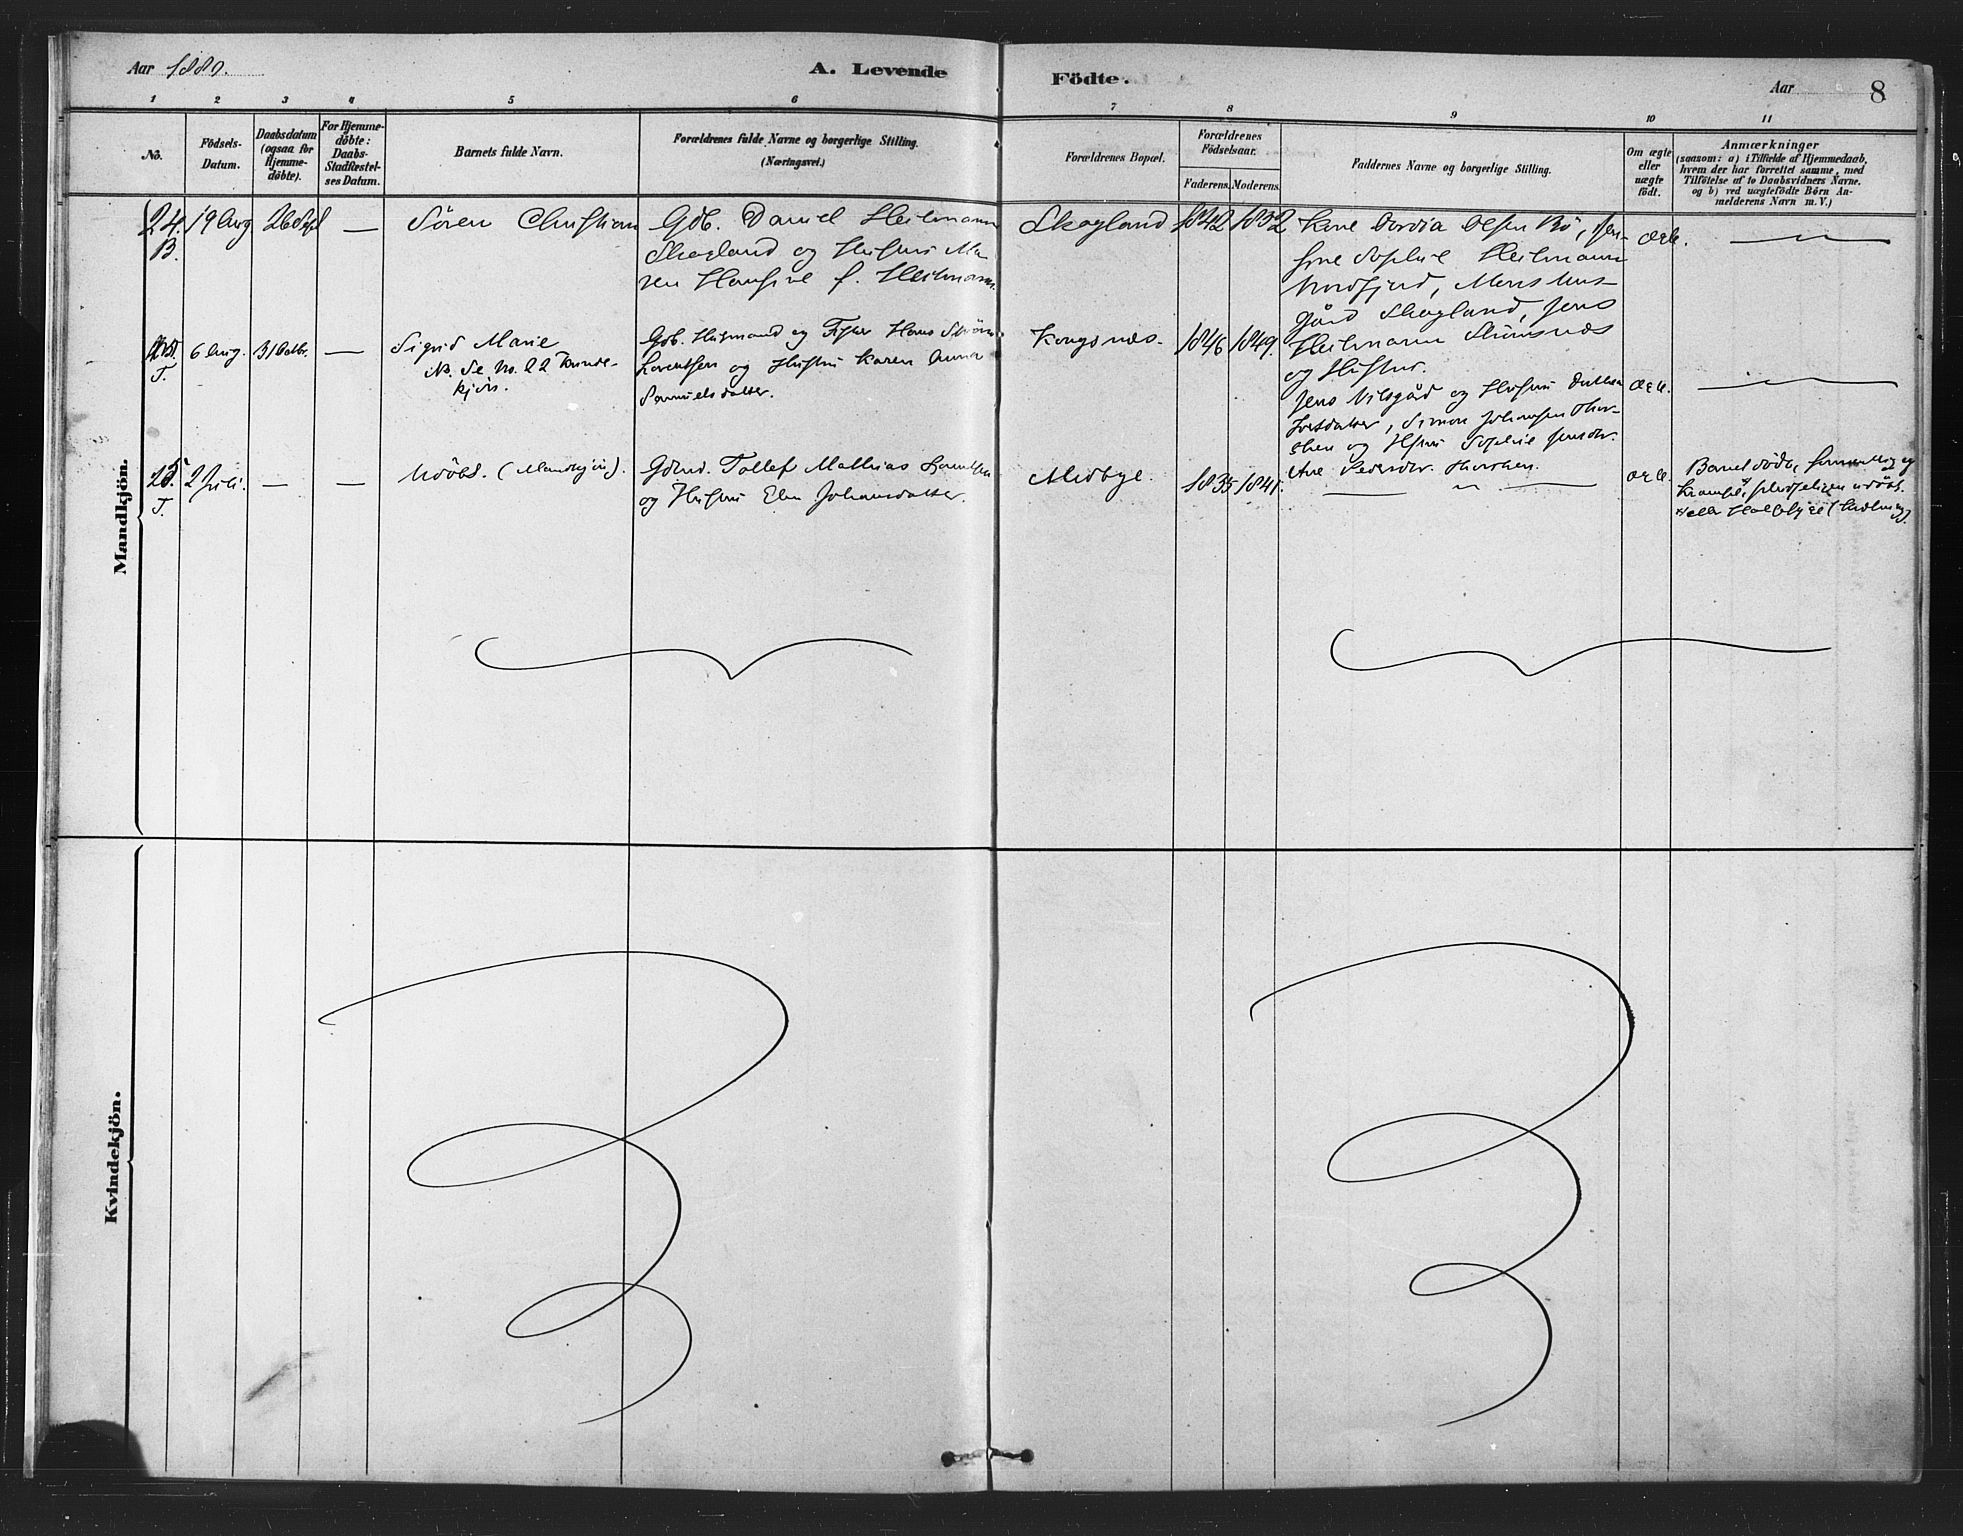 Aar 1880.
A. Levende
Födte.
Aar
8
1 2 3 4 5 6 7 8 9 10 11
No.
Födsels-
Datum.
Daabsdatum
(ogsaa for
Hjemme-
döbte).
For Hjemme-
döbte:
Daabs-
Stadfæstel-
ses Datum.
Barnets fulde Navn.
Forældrenes fulde Navne og borgerlige Stilling.
(Næringsvei.)
Forældrenes Bopæl.
Forældrenes
Födselsaar.
Faderens. Moderens.
Faddernes Navne og borgerlige Stilling.
Om ægte
eller
uægte
födt.
Anmærkninger
(saasom: a) i Tilfælde af Hjemmedaab,
hvem der har forrettet samme, med
Tilföielse af to Daabsvidners Navne.
og b) ved uægtefödte Börn An-
melderens Navn m. V.)
Mandkjön.
24.
B.
19 Aug
26 Sept
—
Sören Christian
Gdb. Daniel Heilmann
Skogland og Hustru Ma-
ren Hansine f. Heilmann.
Skogland
1842
1832
Kone Olsen Bö,
Sophie Heilmann
Nordfjord, Mons
gård Skogland, Jens
Heilmann
og Hustru.
Ægte.
T.
6 Aug.
31 Octbr.
—
Sigrid Marie
N. Se No. 22 Kvinde-
kjön.
Gdb. Husmand og Fisker Hans
Lorentsen og Hustru Karen Anna
Samuelsdatter.
Kongsnes.
1846
1849.
Jens Nilsgård og Hustru
Simon Johansen Thor-
og Hstru Sophie Jensdr.
Ane Pedersdr.
Ægte.
25
T.
2 Juli.
—
—
Udöbt. (Mandkjön).
Gdmd. Tollef Mathias Lorentsen
og Hustru Elen Johansdatter.
Medbye.
1835
1841.
ægte.
Barnet döde,
Krampe, udöbt.
Kvindekjön.